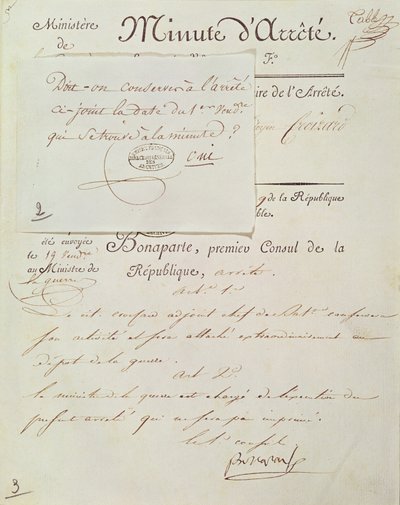 Ministère
de
Minute d'Arrêté.
F.°
Doit-on conserver à l'arrêté
ci-joint la date du 1er Vend.re
qui se trouve à la minute?
oui
2
ire de l'Arrêté.
toyen Croizard
9 de la République
ble.
été envoyée
le 19 Vend.re
au Ministre de
la guerre
Bonaparte, premier Consul de la
République, arrête
art. 1er
Le cit. adjoint chef de conservera
son activité et sera attaché extraordinairement au
dépôt de la guerre.
art 2.
le ministre de la guerre est chargé de l'exécution du
présent arrêté qui ne sera pas imprimé.
le 1er consul
3